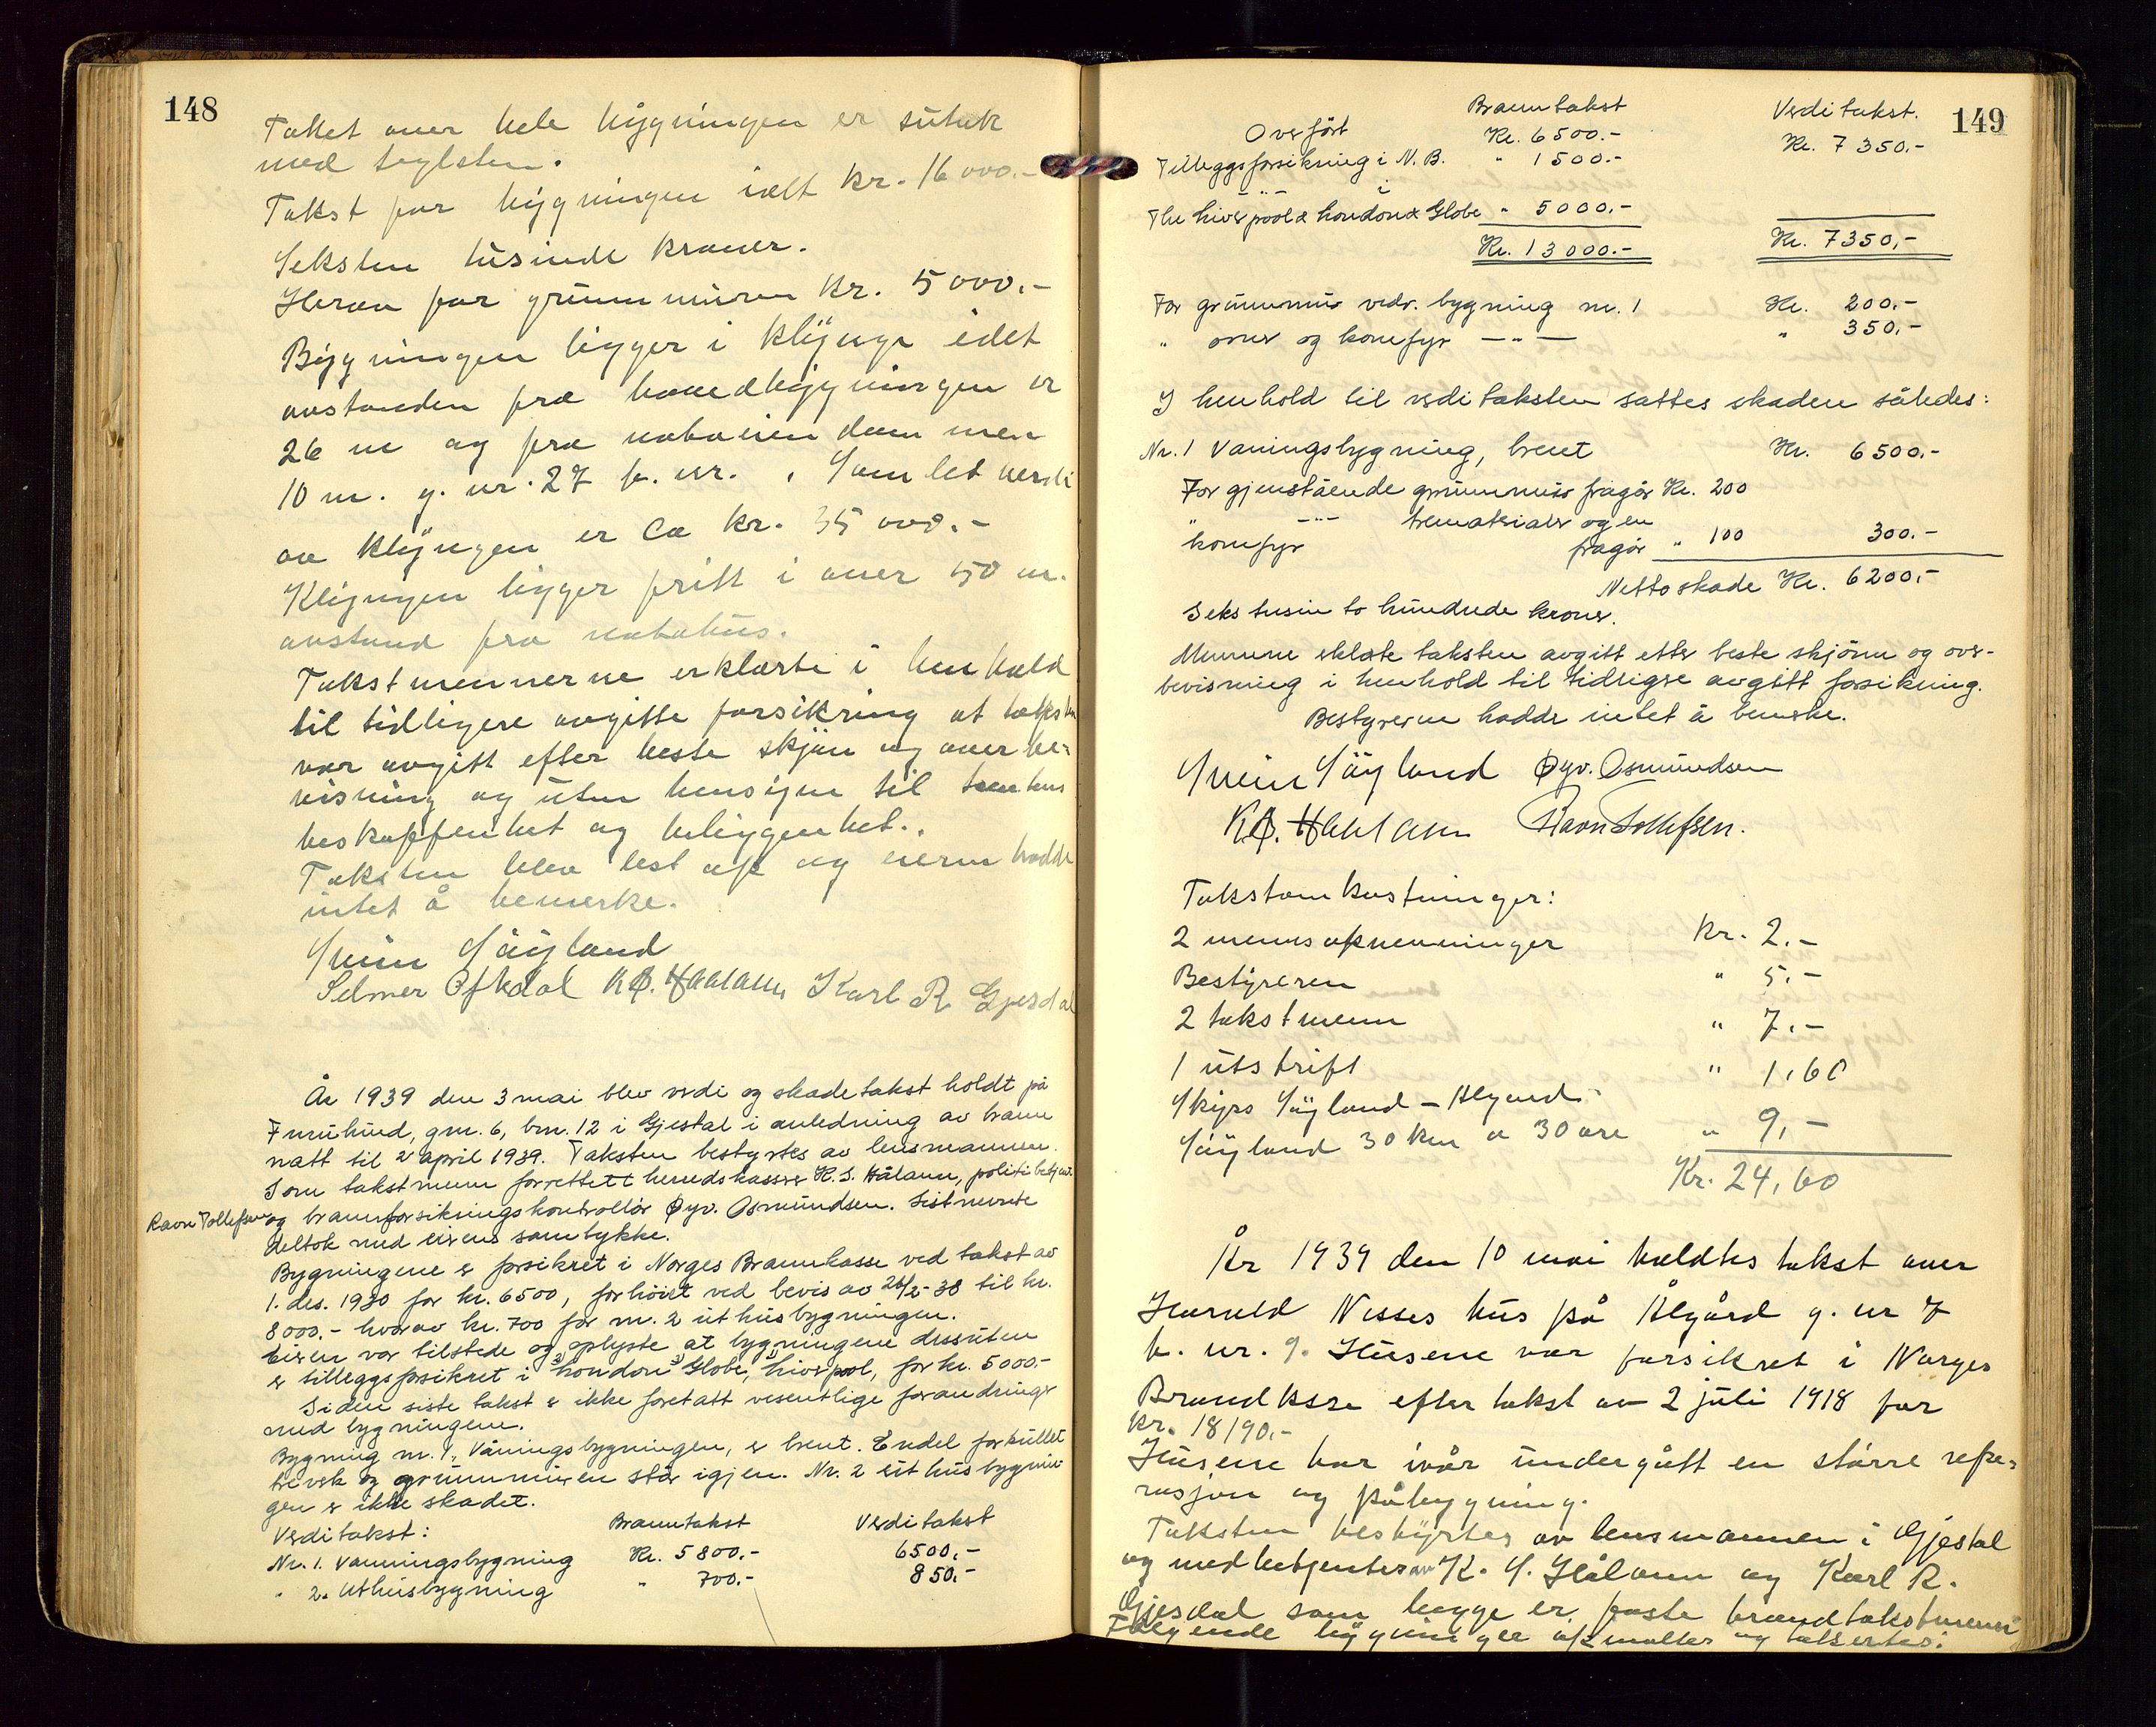 148
Taket over hele bygningen er sutak
med teglsten.
Takst for bygningen ialt kr. 16 000.-
Seksten tusinde kroner.
Herav for grunnmuren kr. 5 000.-
Bygningen ligger i klynge idet
avstanden fra hovedbygningen er
26 m og fra naboeiendommen
10 m. g. nr. 27 b. nr. . Samlet verdi
av klyngen er Ca kr. 35 000.-
Klyngen ligger fritt i over 50 m.
avstand fra nabohus.
Takstmennerne erklærte i henhold
til tidligere avgitte forsikring at taksten
var avgitt efter beste skjön og overbe-
visning og uten hensyn til tomtens
beskaffenhet og beliggenhet.
Taksten blev lest op og eieren hadde
intet å bemerke.
Svein Söyland
Selmer Ofstdal K.S. Haalann Karl R Gjesdal
År 1939 den 3 mai blev verdi og skadetakst holdt på
Furulund, gnr. 6, bnr. 12 i Gjestal i anledning av brann
natt til 2 april 1939. Taksten bestyrtes av lensmannen.
Som takstmenn forrettett herredskasser K. S. Hålann, politibetjent
Ravn Tollefsen og brannforsikringskontrollör Öyv. Osmundsen. Sistnevnte
deltok med eierens samtykke.
Bygningene er forsikret i Norges Brannkasse ved takst av
1. des. 1930 for kr. 6500, forhöiet ved bevis av 26/2-38 til kr.
8000.- hvorav kr. 700 for nr. 2 uthusbygningen.
Eieren var tilstede og oplyste at bygningene dessuten
er tilleggsforsikret i 2) London 3) Globe, 1) Liverpool, for kr. 5000.-
Siden siste takst er ikke foretatt vesentlige forandringer
med bygningene.
Bygning nr. 1, Våningsbygningen, er brent. Endel forkullet
treverk og grunnmuren står igjen. Nr. 2 uthusbygnin-
gen er ikke skadet.
Verditakst: Branntakst Verditakst
Nr. 1. Vanningsbygning Kr. 5800.- 6500.-
" 2. Uthusbygning " 700.- 850.-
149
Branntakst Verditakst.
Overfört Kr. 6500.- Kr. 7350.-
Tilleggsforsikring i N. B. " 1500.-
-"- i
The Liverpool & London & Globe " 5000.-
Kr. 13000.- Kr. 7350.-
For grunnmur vedr. bygning nr. 1 Kr. 200.-
" ovner og komfyr -"- " 350.-
I henhold til verditaksten sattes skaden således:
Nr. 1 Vaningsbygning, brent Kr. 6500.-
For gjenstående grunnmur fragår Kr. 200
" -"- trematerialer og en
komfyr fragår " 100 300.-
Nettoskade Kr. 6200.-
Seks tusin to hundrede kroner.
Mennene erklærte taksten avgitt etter beste skjönn og over-
bevisning i henhold til tidligere avgitt forsikring.
Bestyreren hadde intet å bemerke.
Svein Söyland Öyv. Osmundsen
K.S. Haalann Ravn Tollefsen.
Takstomkostninger:
2 menns opnevninger Kr. 2.-
Bestyreren " 5.-
2 takstmenn " 7.-
1 utskrift " 1,60
Skyss Söyland - Algaard -
Söyland 30 km a 30 øre " 9,-
Kr. 24,60
År 1939 den 10 mai holdtes takst over
Harald Nisses hus på Ålgård g. nr 7
b. nr. 9. Husene var forsikret i Norges
Brandkasse efter takst av 2 juli 1918 for
kr. 18190.-
Husene har ivår undergått en större repa-
rasjon og påbygning.
Taksten bestyrtes av lensmannen i Gjestal
og medbetjentes av K. S. Hålann og Karl R.
Gjesdal som begge er faste brandtakstmenn
Fölgende bygninger opmaltes og taksertes: